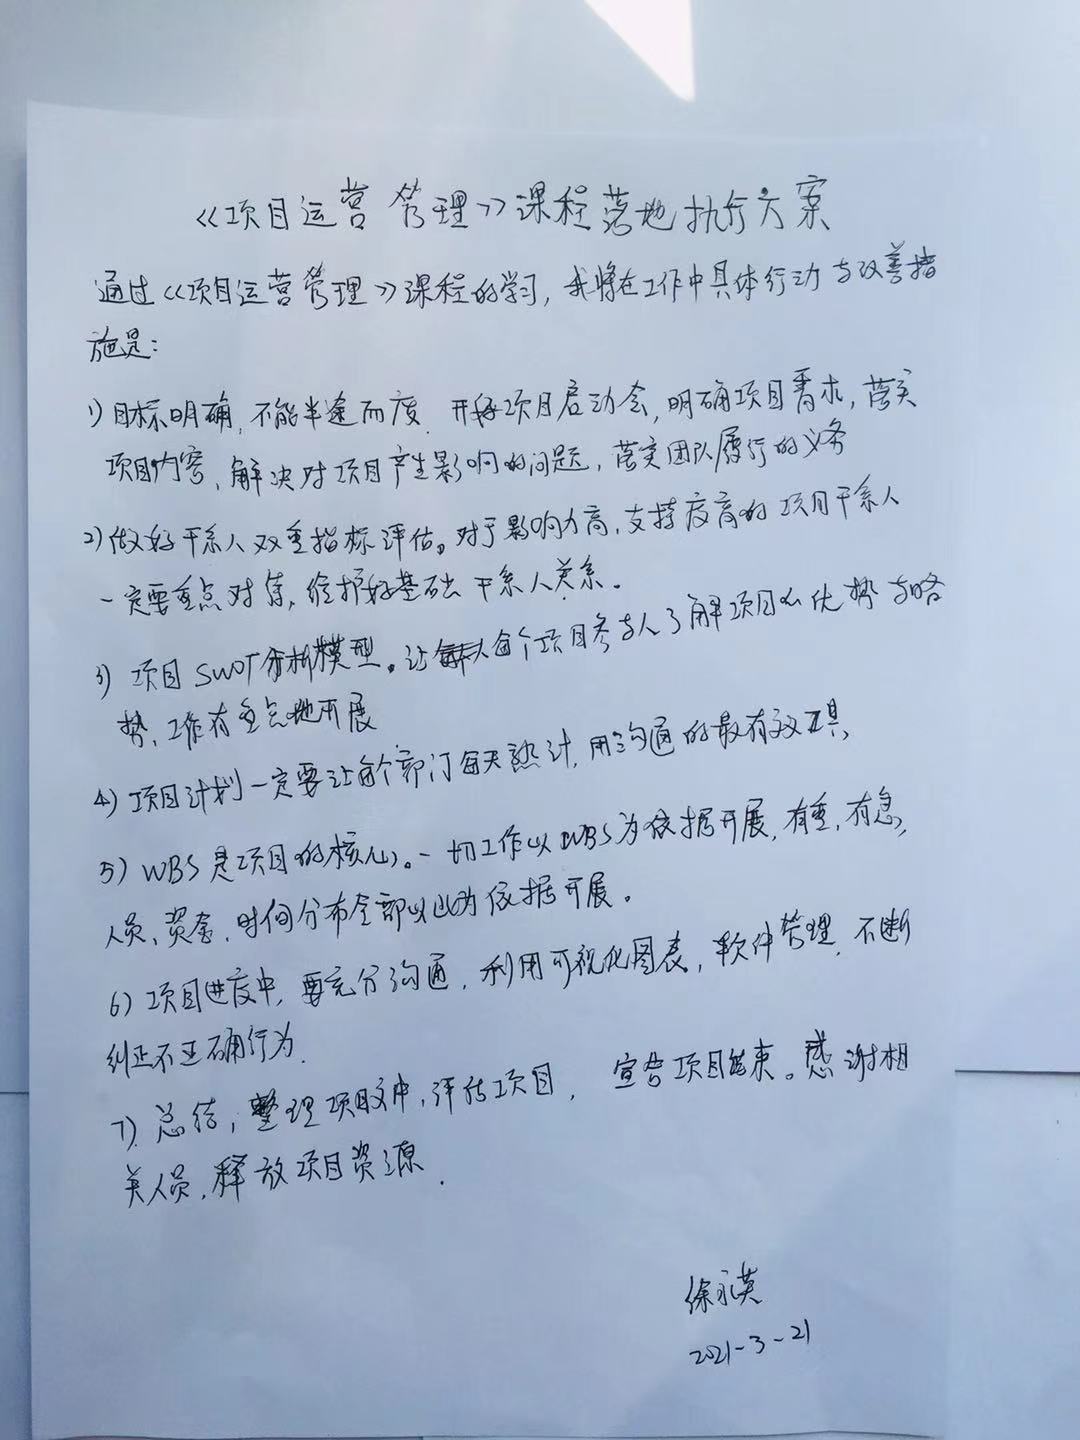 《项目运营管理》课程落地执行方案
通过《项目运营管理》课程的学习,我将在工作中具体行动与改善措
施是:
1)目标明确,不能半途而废.开好项目启动会,明确项目需求,落实
项目内容,解决对项目产生影响的问题,落实团队履行的义务
2)做好干系人双重指标评估。对于影响力高,支持度高的项目干系人
一定要重点对待,维护好基础干系人关系。
3)项目SWOT分析模型。让每个项目参与人了解项目的优势与略
势,工作有重点地开展
4)项目计划一定要让每个部门每天熟计,用沟通的最有效工具,
5)WBS是项目的核心。一切工作以WBS为依据开展,有重,有急,
人员、资金,时间分布全部以此为依据开展。
6)项目进度中,要充分沟通,利用可视化图表,软件管理,不断
纠正不正确行为.
7)总结,整理项目文件,评估项目,宣告项目结束。感谢相
关人员,释放项目资源.
徐永英
2021-3-21